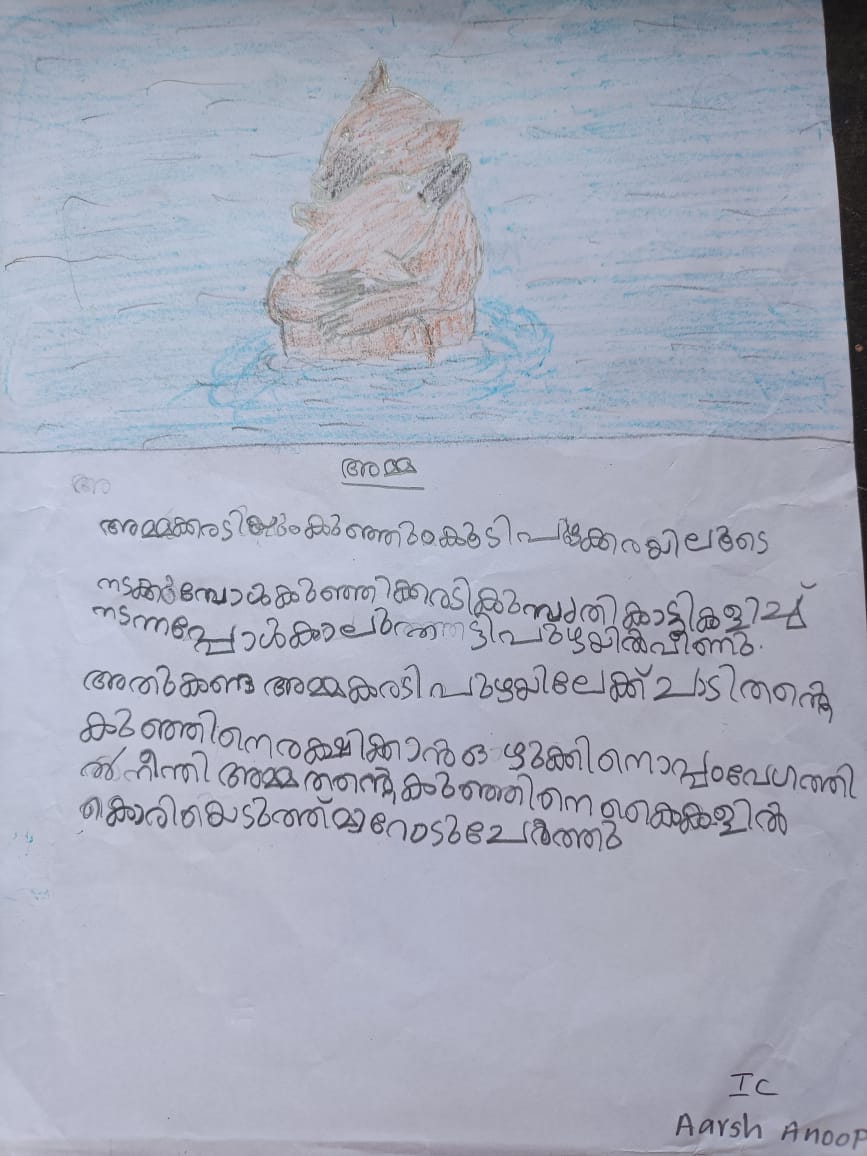 അമ്മ
അ
അമ്മക്കരടിയും കുഞ്ഞും കൂടി പുഴക്കരയിലൂടെ
നടക്കുമ്പോൾ കുഞ്ഞിക്കരടി കുസൃതി കാട്ടി കളിച്ച്
നടന്നപ്പോൾ കാലുതട്ടി പുഴയിൽ വീണു.
അതുകണ്ട അമ്മകരടി പുഴയിലേക്ക് ചാടി തന്റെ
കുഞ്ഞിനെ രക്ഷിക്കാൻ ഒഴുക്കിനൊപ്പം വേഗത്തി
ൽ നീന്തി അമ്മ തന്റെ കുഞ്ഞിനെ കൈകളിൽ
കൊരിയെടുത്ത് മാറോടു ചേർത്തു
IC
Aarsh Anoop